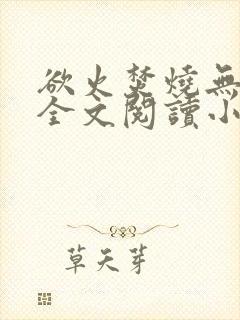 欲火焚燒無
全文閱讀小
草天芽